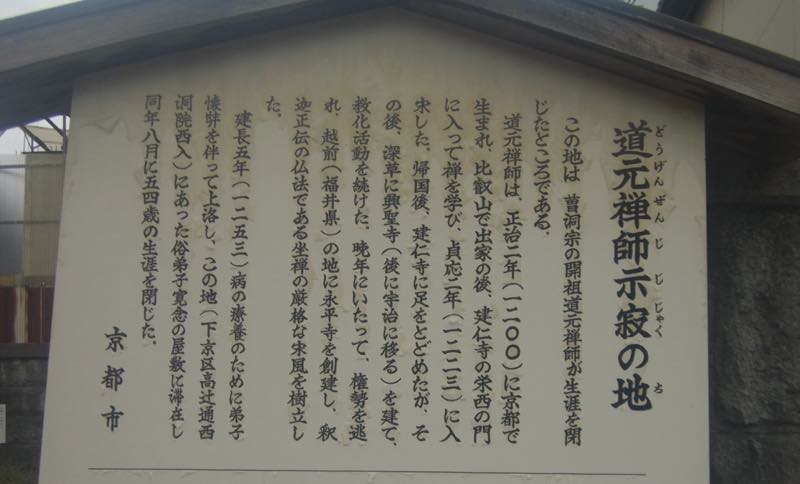 道元禅師示寂の地
どうげんぜんじじじゃく ち
この地は、曹洞宗の開祖道元禅師が生涯を閉
じたところである。
道元禅師は、正治二年(一二〇〇)に京都で
生まれ、比叡山で出家の後、建仁寺の栄西の門
に入って禅を学び、貞応二年(一二二三)に入
宋した。帰国後、建仁寺に足をとどめたが、そ
の後、深草に興聖寺(後に宇治に移る)を建て、
教化活動を続けた。晩年にいたって、権勢を逃
れ、越前(福井県)の地に永平寺を創建し、釈
迦正伝の仏法である坐禅の厳格な宋風を樹立し
た。
建長五年(一二五三)病の療養のために弟子
懐弉を伴って上洛し、この地(下京区高辻通西
洞院西入)にあった俗弟子覚念の屋敷に滞在し
同年八月に五四歳の生涯を閉じた。
京都市